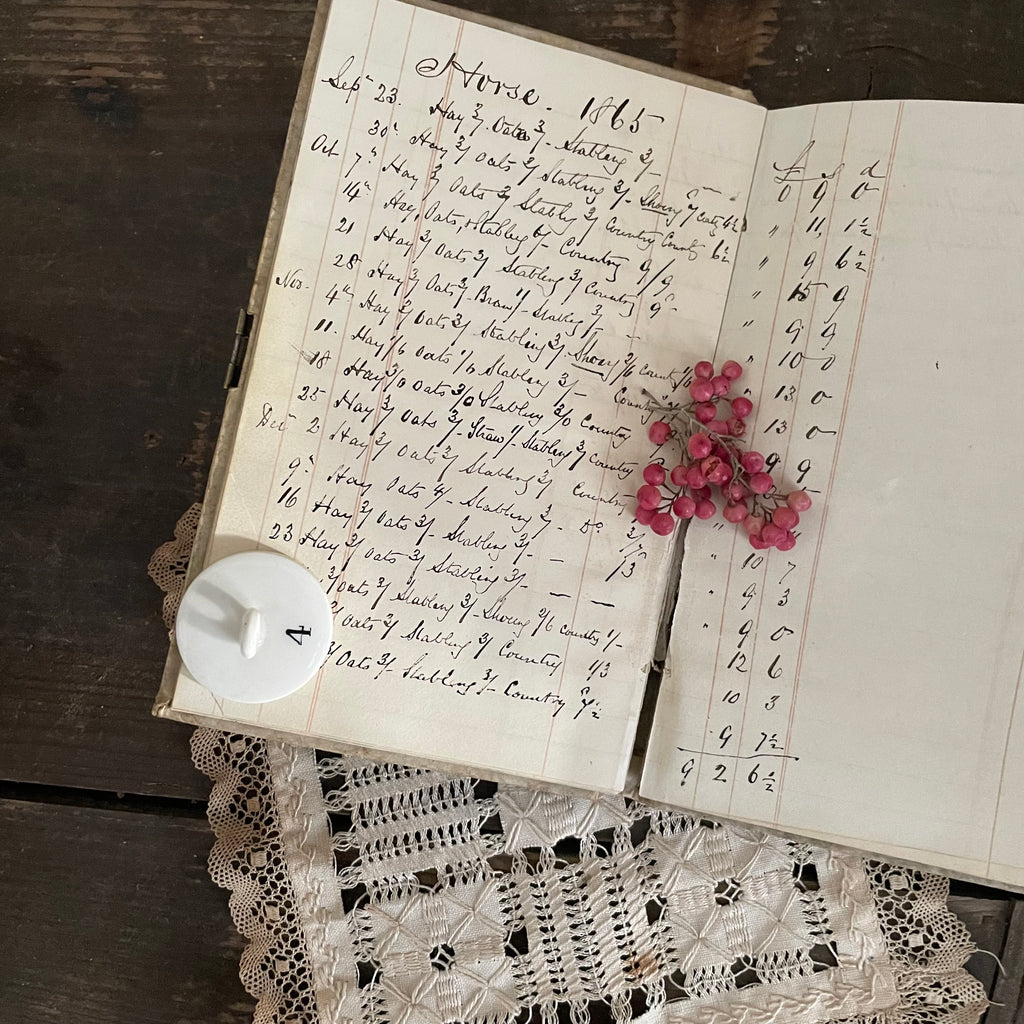 Horse. 1865
£ s d
Sepr 23. Hay 3/. Oats 3/- Stabling 3/- 0 9 0
30th Hay 3/ Oats 3/ Stabling 3/- Shoing 2/ 4½ " 11, 1½
Oct 7th Hay 3/ Oats 3/ Stablg 3/ Country County 6½ " 9 6½
14th Hay, Oats, & Stabling 6/- Country 9/9 " 15 9
21 Hay 3/ Oats 3/ Stabling 3/ Country 9d " 9 9
28 Hay 3/ Oats 3/. Bran 1/- Stabling 3/- " 10 0
Nov. 4th Hay 3/ Oats 3/- Stabling 3/ Shoing 2/6 County 1/6 " 13 0
11. Hay Oats Stabling 3/- Country 13 0
18 Hay 3/0 Oats 3/0 Stabling 3/0 Country 9 9
25 Hay 3/ Oats 3/- Straw 1/- Stabling 3/ Country
Decr 2 Hay 3/ Oats 3/ Stabling 3/ Country "
9th Hay Oats 4/- Stabling 3/- Do. 1/7 " 10 7
16 Hay 3/ Oats 3/- Stabling 3/- - /3 " 9 3
23 Hay 3/ Oats 3/ Stabling 3/- — — " 9 0
3/ Oats 3/ Stabling 3/- Shoing 2/6 Country 1/- 12 6
3/ Oats 3/ Stabling 3/ Country 1/3 10 3
3/ Oats 3/- Stabling 3/- Country 7½ 9 7½
9 2 6½
4